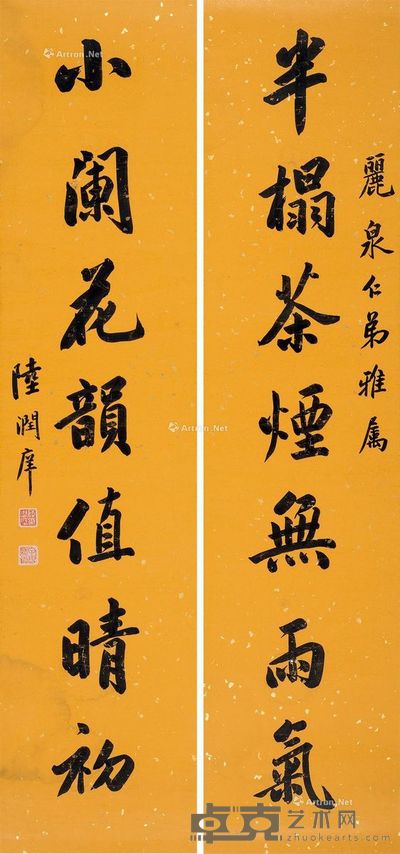 麗泉仁弟雅属
半榻茶煙無雨氣
小阑花韻值晴初
陸潤庠
Artron.Net
卓克艺术网
zhuokearts.com